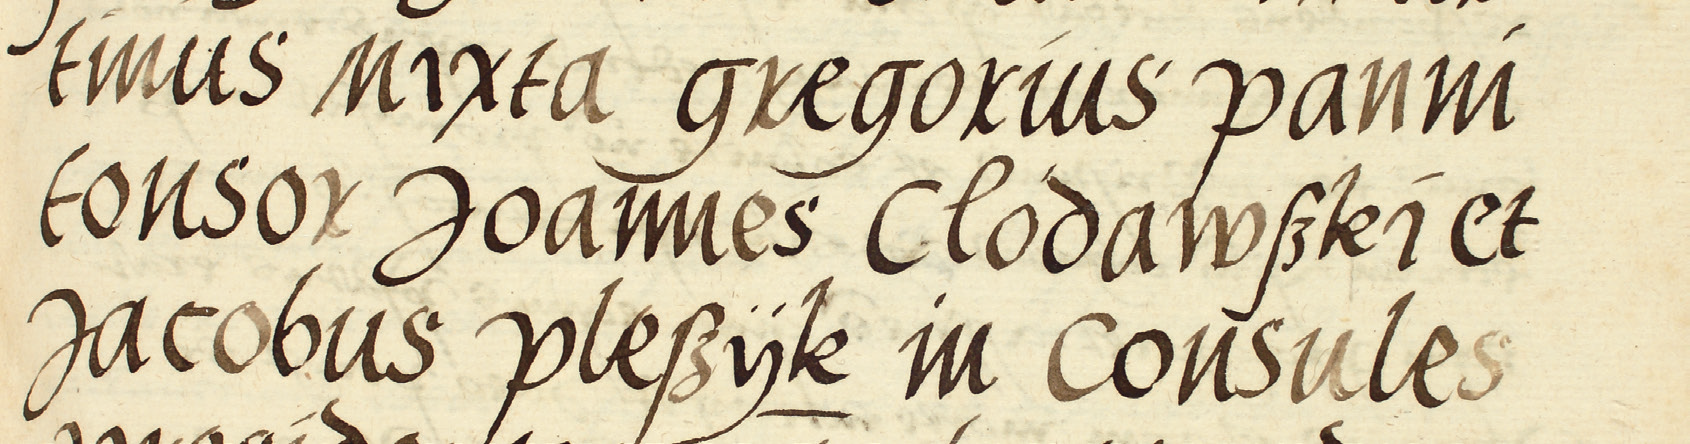 tinus Mixta gregorius panni
tonsor Joannes Clodawßki et
Jacobus pleßÿk in Consules